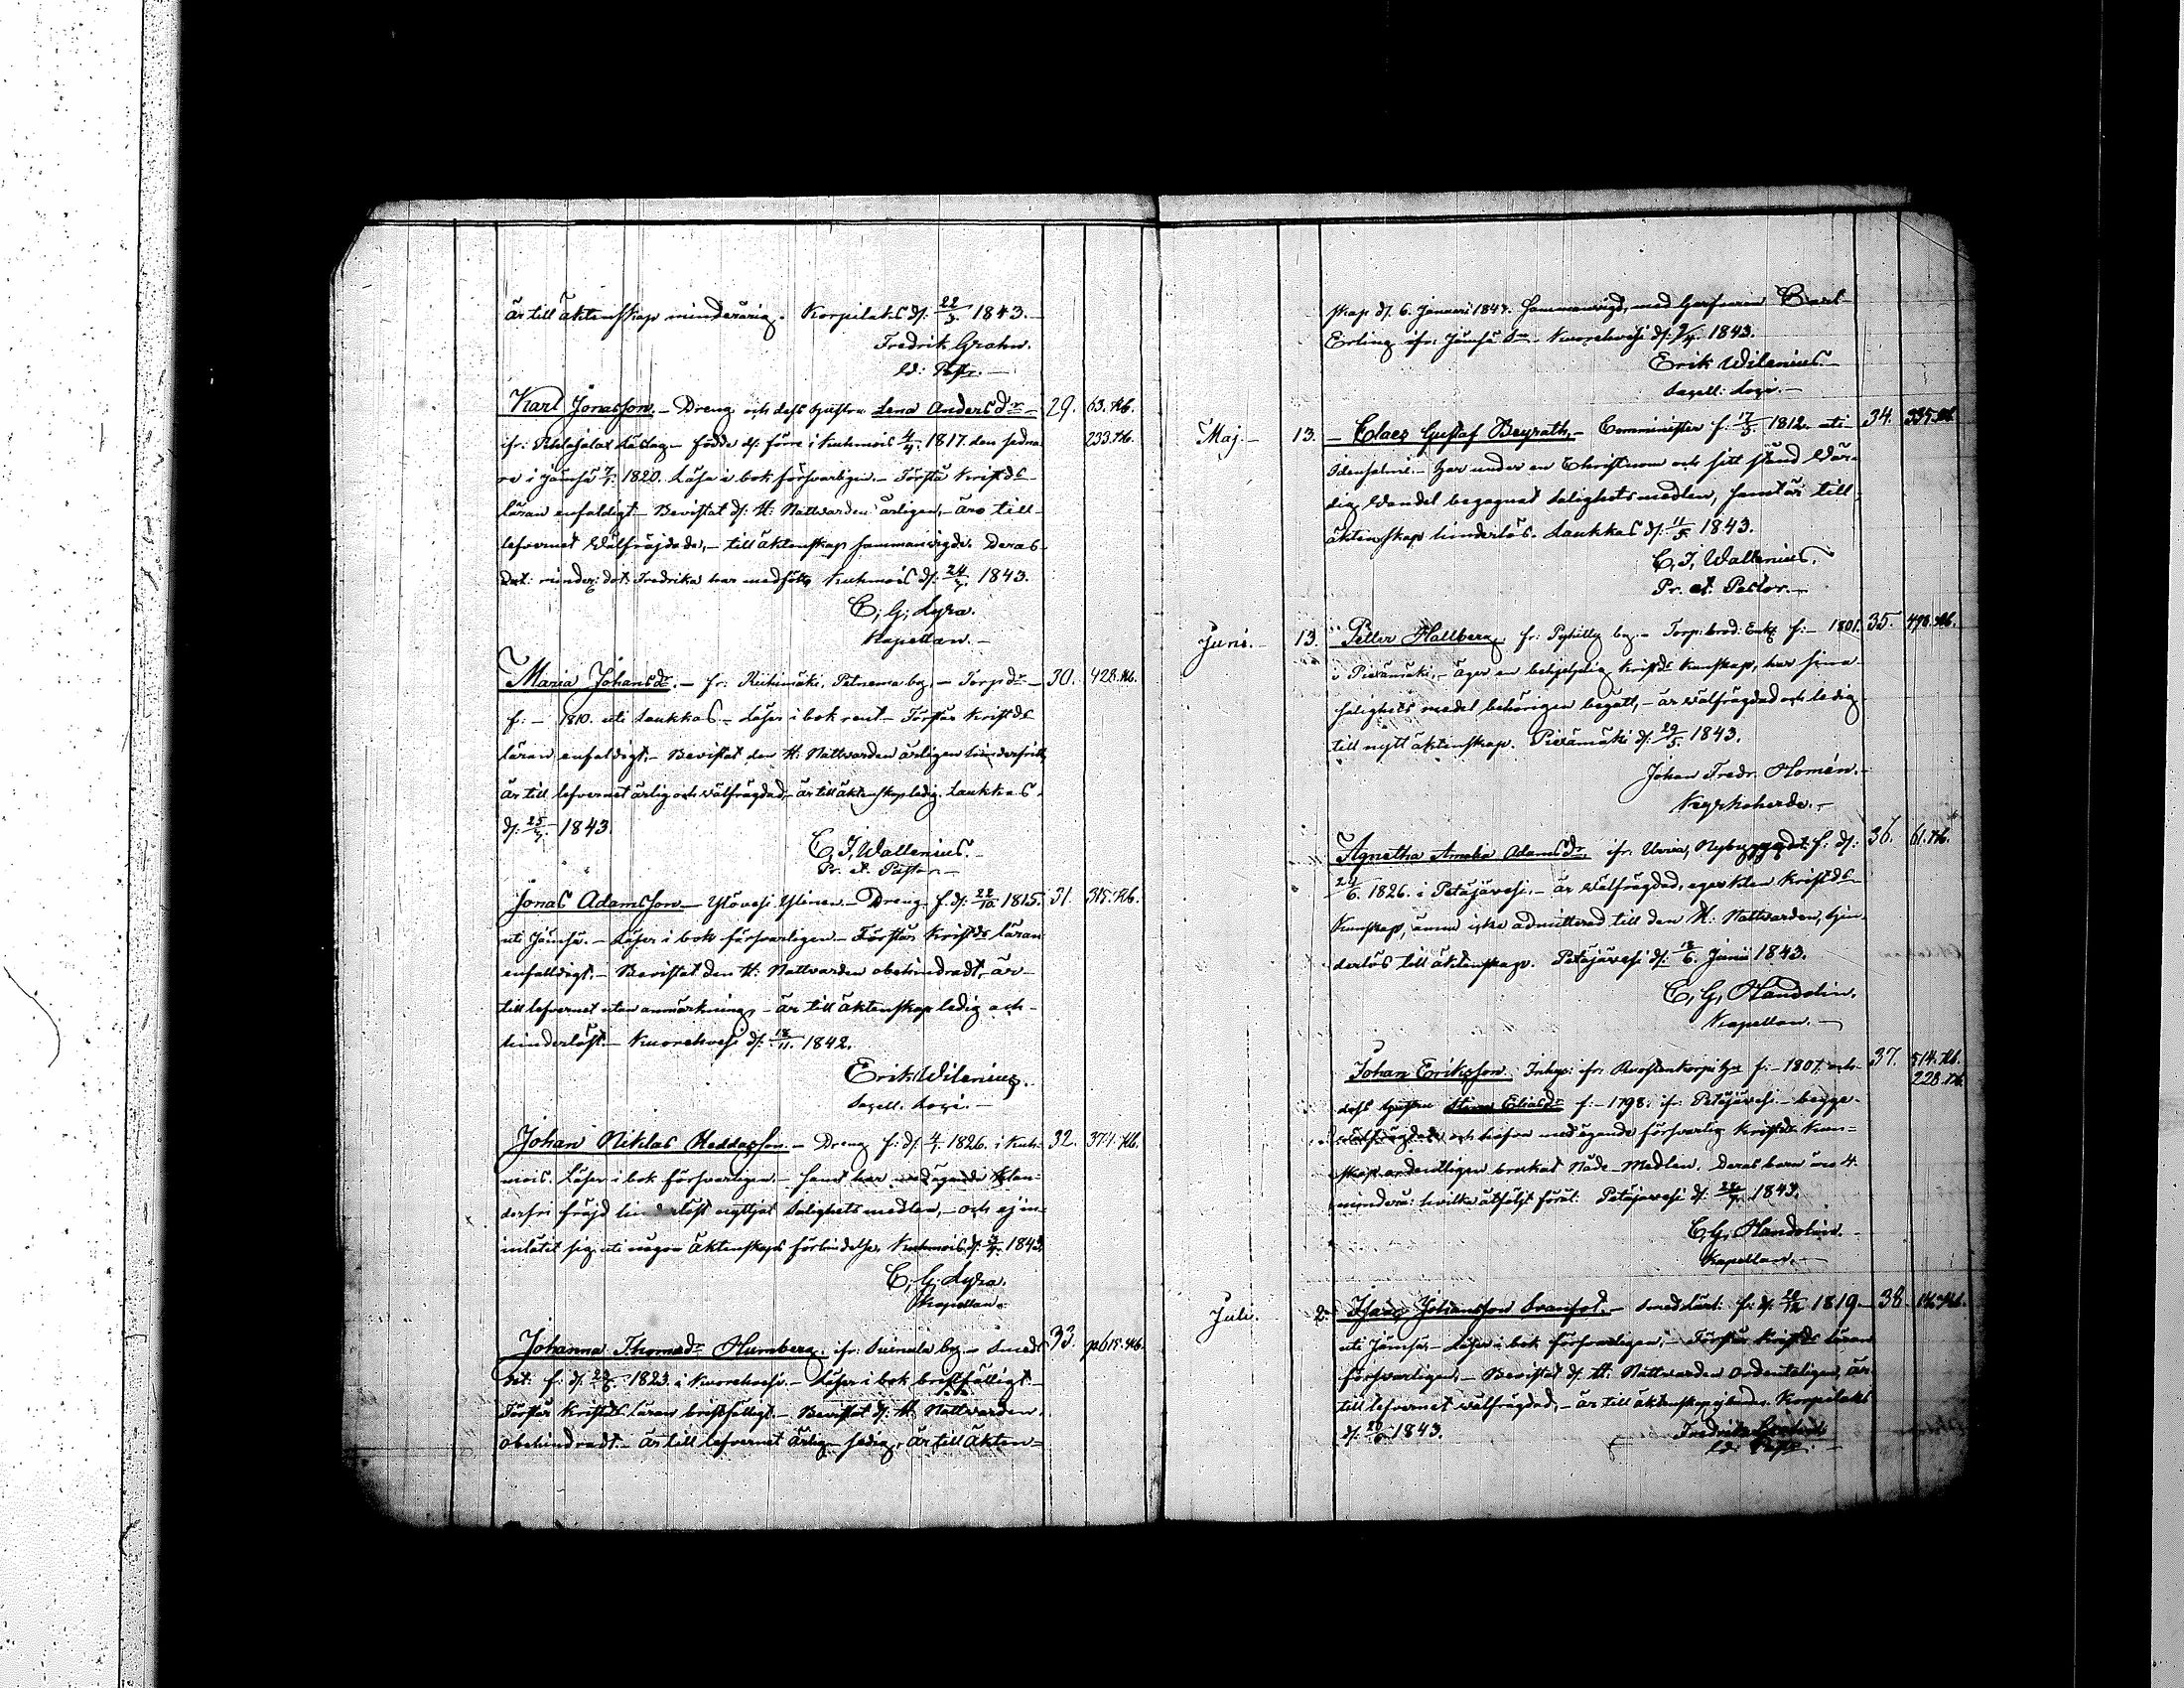 är till äktenskap minderårig. Korpilaks d: 22/3 1843.
Fredrik Grahn.
Vd: Past:
Karl Jonasson. - Dreng och dess hustru Lena Andersdr 29. 63. Kb.
233. Kb.
födde d: förre i Kuhmois 4/4 1817. den sedna-
re i Jämsä 7/7 1820. Läsa i bok försvarligen. - Förstå Kristds
läran enfaldigt - Bevistat d: H: Nattvarden årligen, - äro till
lefvernet Välfräjdade, - till äktenskap sammanvigde. Deras
minder: dot: Fredrika har medföllj Kuhmois d: 24/3 1843.
C, G, Lyra.
Kapellan. -
Maria Johansdr. - fr: Ruhimäki, by, - Torpdr - 30. 428. Kb.
f: - 1810. uti Laukkas - Läser i bok rent - Förstår Kristds
läran enfaldigt, - Bevistat den H: Nattvarden årligen
är till lefvernet ärlig och välfrägdad, är till äktenskap ledig. Laukkas
d: 25/3 1843.
C, J, Wallenius. -
Pr. et. Pastor. -
Jonas Adamsson - Ylövesi Ylinen. - Dreng f. d: 22/10 1815. 31. 315. Kb.
uti Jämsä. - Läser i bok försvarligen - Förstår Kristds läran
enfalldigt. - Bevistat den H: Nattvarden obehindradt, är
till lefvernet utan anmärkning, - är till äktenskap ledig och
hinderlöst. - Kuorehvesi d: 18/11. 1842.
Erik Wilenius.
Sacell. Loci. -
Johan Niklas - Dreng f: d: 4/7 1826. i Kuh- 32. 374. Kb.
mois. Läser i bok försvarligen. - samt har med ägande klan-
derfri fräjd hinderlöst nyttjat Salighetsmedlen, - och ej in-
inlåtit sig uti någon Äktenskaps förbindelse. Kuhmois d: 1843.
C, G, Lyra.
Kapellan.
Johanna Thomasdr Humberg. ifr: by. - Smeds 33. p 615. Kb.
dot: f: d: 1823 i Kuorehvesi. - Läser i bok bristfälligt. -
Förstår Kristds Läran bristfälligt. - Bevistat d: H: Nattvarden.
obehindradt. - är till lefvernet ärlig - sedig, är till äkten-
skap d: 6. Januari 1841. sammanvigd, med Garfvaren Carl
Erling ifr: Jämsä Sn. Kuorehvesi d: 1843.
Erik Wilenius. -
Sacell. Loci. -
Maj. - 13. - Claes Gustaf Beyrath, - Comminister f: 17/3 1812. uti 34. 335. Kb.
Idensalmi. - Har under en Christnom och sitt stånd Vär-
dig Vandel begagnat Salighetsmedlen, samt är till
äktenskap hinderlös. Laukkas d: 11/5 1843.
C, J, Wallenius.
Pr. et. Pastor. -
Juni. - 13. Petter Hallberg fr: by. - Torp: brod: Enkl f: - 1801. 35. 498. Kb.
i Piexämäki, - äger en behjelplig Kristds Kunskap, har sina
salighets medel behörigen begått, - är välfrägdad och ledig
till nytt äktenskap. Piexämäki d: 29/5. 1843.
Johan Fredr. Homén. -
Kyrkoherde. -
Agnetha Amalia Adamsdr. ifr: f. d: 36. 61. Kb.
24/6 1826. i Petäjävesi. - är välfrägdad, eger Kristds
Kunskap, ännu icke admitterad till den H: Nattvarden, hin-
derlös till äktenskap. Petäjävesi d: 18/6. Juni 1843.
C, G, Mandolin.
Kapellan. -
Johan Eriksson. Inhys: ifr: f: - 1807. och 37. 514. Kb.
228. Kb.
dess hustru Eliasdr f: - 1798. ifr: Petäjävesi. - begge
välfrägdade och hafva medägande försvarlig Kristds Kun-
skap ordentligen brukat Nåde-Medlen. Deras barn äro 4.
minderå: hvilka åtfölja föräl: Petäjävesi d: 1843.
C, G, Mandolin. -
Kapellan. -
Juli. 2. Isaac Johansson - Smed Lärl: f: d: 1819. - 38.
uti Jämsä, - Läser i bok försvarligen, - Förstår Kristds Läran
försvarligen, - Bevistat d: H: Nattvarden ordenteligen, är
till lefvernet välfrägdad, - är till äktenskap Korpilaks
d: 1843.
Fredrik Grahn.
Vd: Past: -